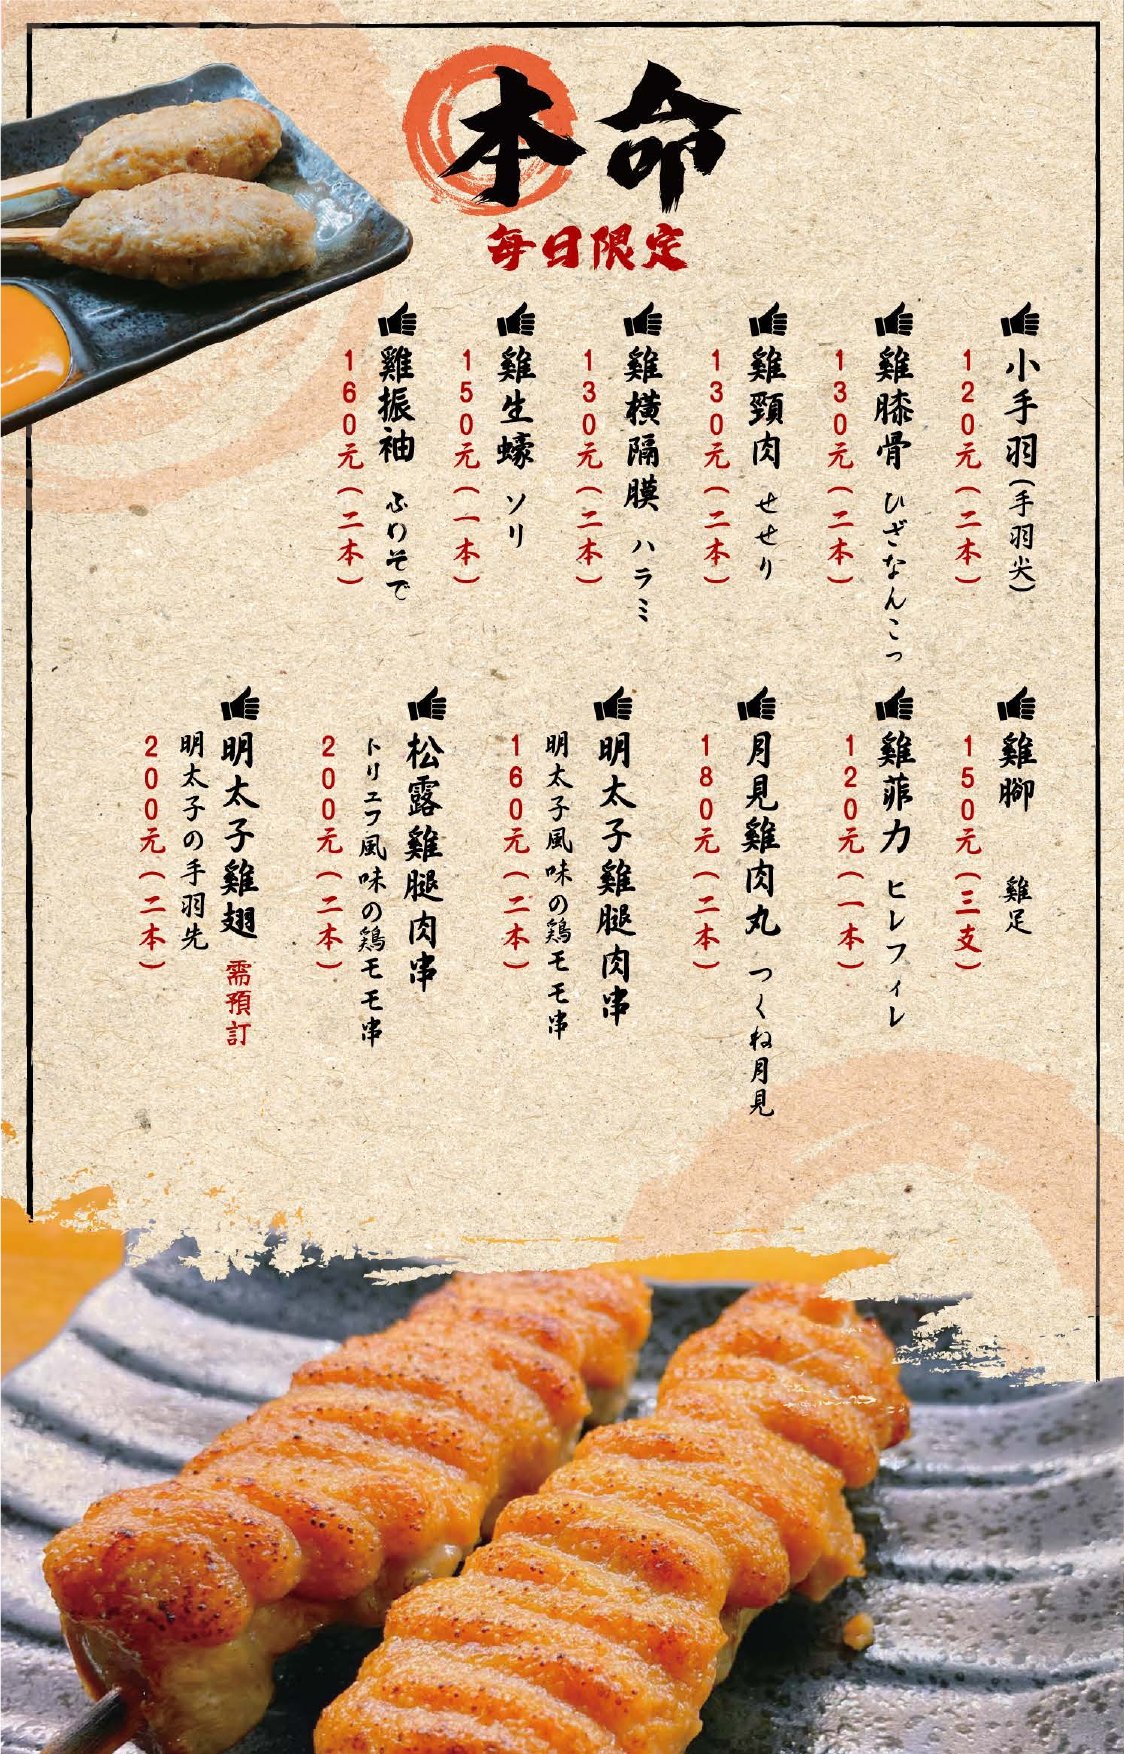 本命
每日限定
小手羽(手羽尖)
120元(二本)
雞膝骨 ひざなんこつ
130元(二本)
雞頸肉 せせり
130元(二本)
雞橫隔膜 ハラミ
130元(二本)
雞生蠔 ソリ
150元(一本)
雞振袖 ふりそで
160元(二本)
雞腳 雞足
150元(三支)
雞菲力 ヒレフィレ
120元(一本)
月見雞肉丸 つくね月見
180元(二本)
明太子雞腿肉串
明太子風味の鶏モモ串
160元(二本)
松露雞腿肉串
トリュフ風味の鶏モモ串
200元(二本)
明太子雞翅 需預訂
明太子の手羽先
200元(二本)